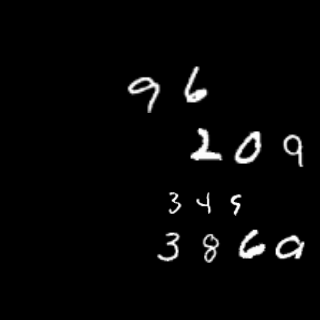 9 6
2 0 9
3 4 5
3 8 6 a